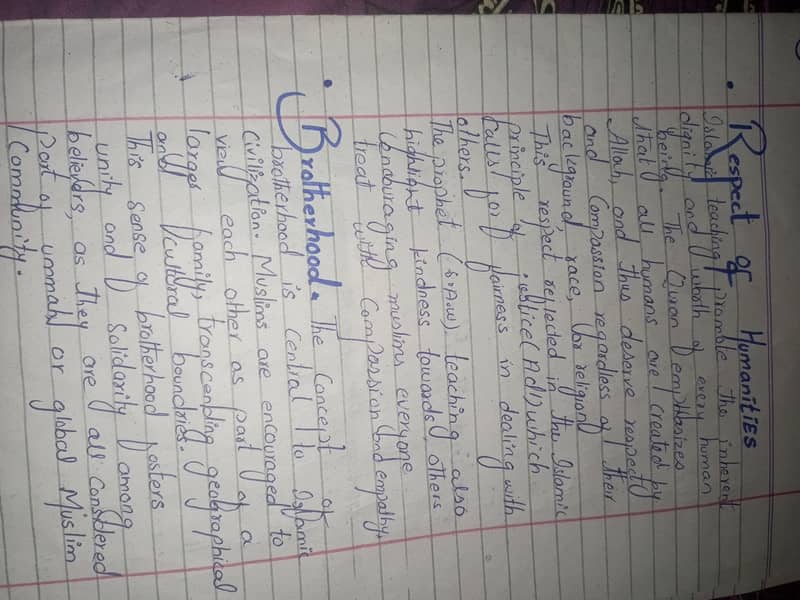 • Respect of Humanities
Islamic teaching promble the inherent
dignity and worth of every human
being. The Quran emphasizes
that all humans are created by
Allah, and thus deserve respect
and Compassion regardless of their
background, race, or religion
This respect reflected in the Islamic
principle of justice (Adl) which
calls for fairness in dealing with
others.
The prophet (S.A.W) teaching also
highlight kindness towards others
encouraging muslims everyone
treat with Compassion and empathy.
• Brotherhood. The Concept of
brotherhood is central to Islamic
civilization. Muslims are encouraged to
view each other as part of a
larger family, transcending geographical
and cutural boundries.
This sense of brotherhood fosters
unity and Solidarity among
believers, as they are all Considered
part of ummah or global Muslim
Community.